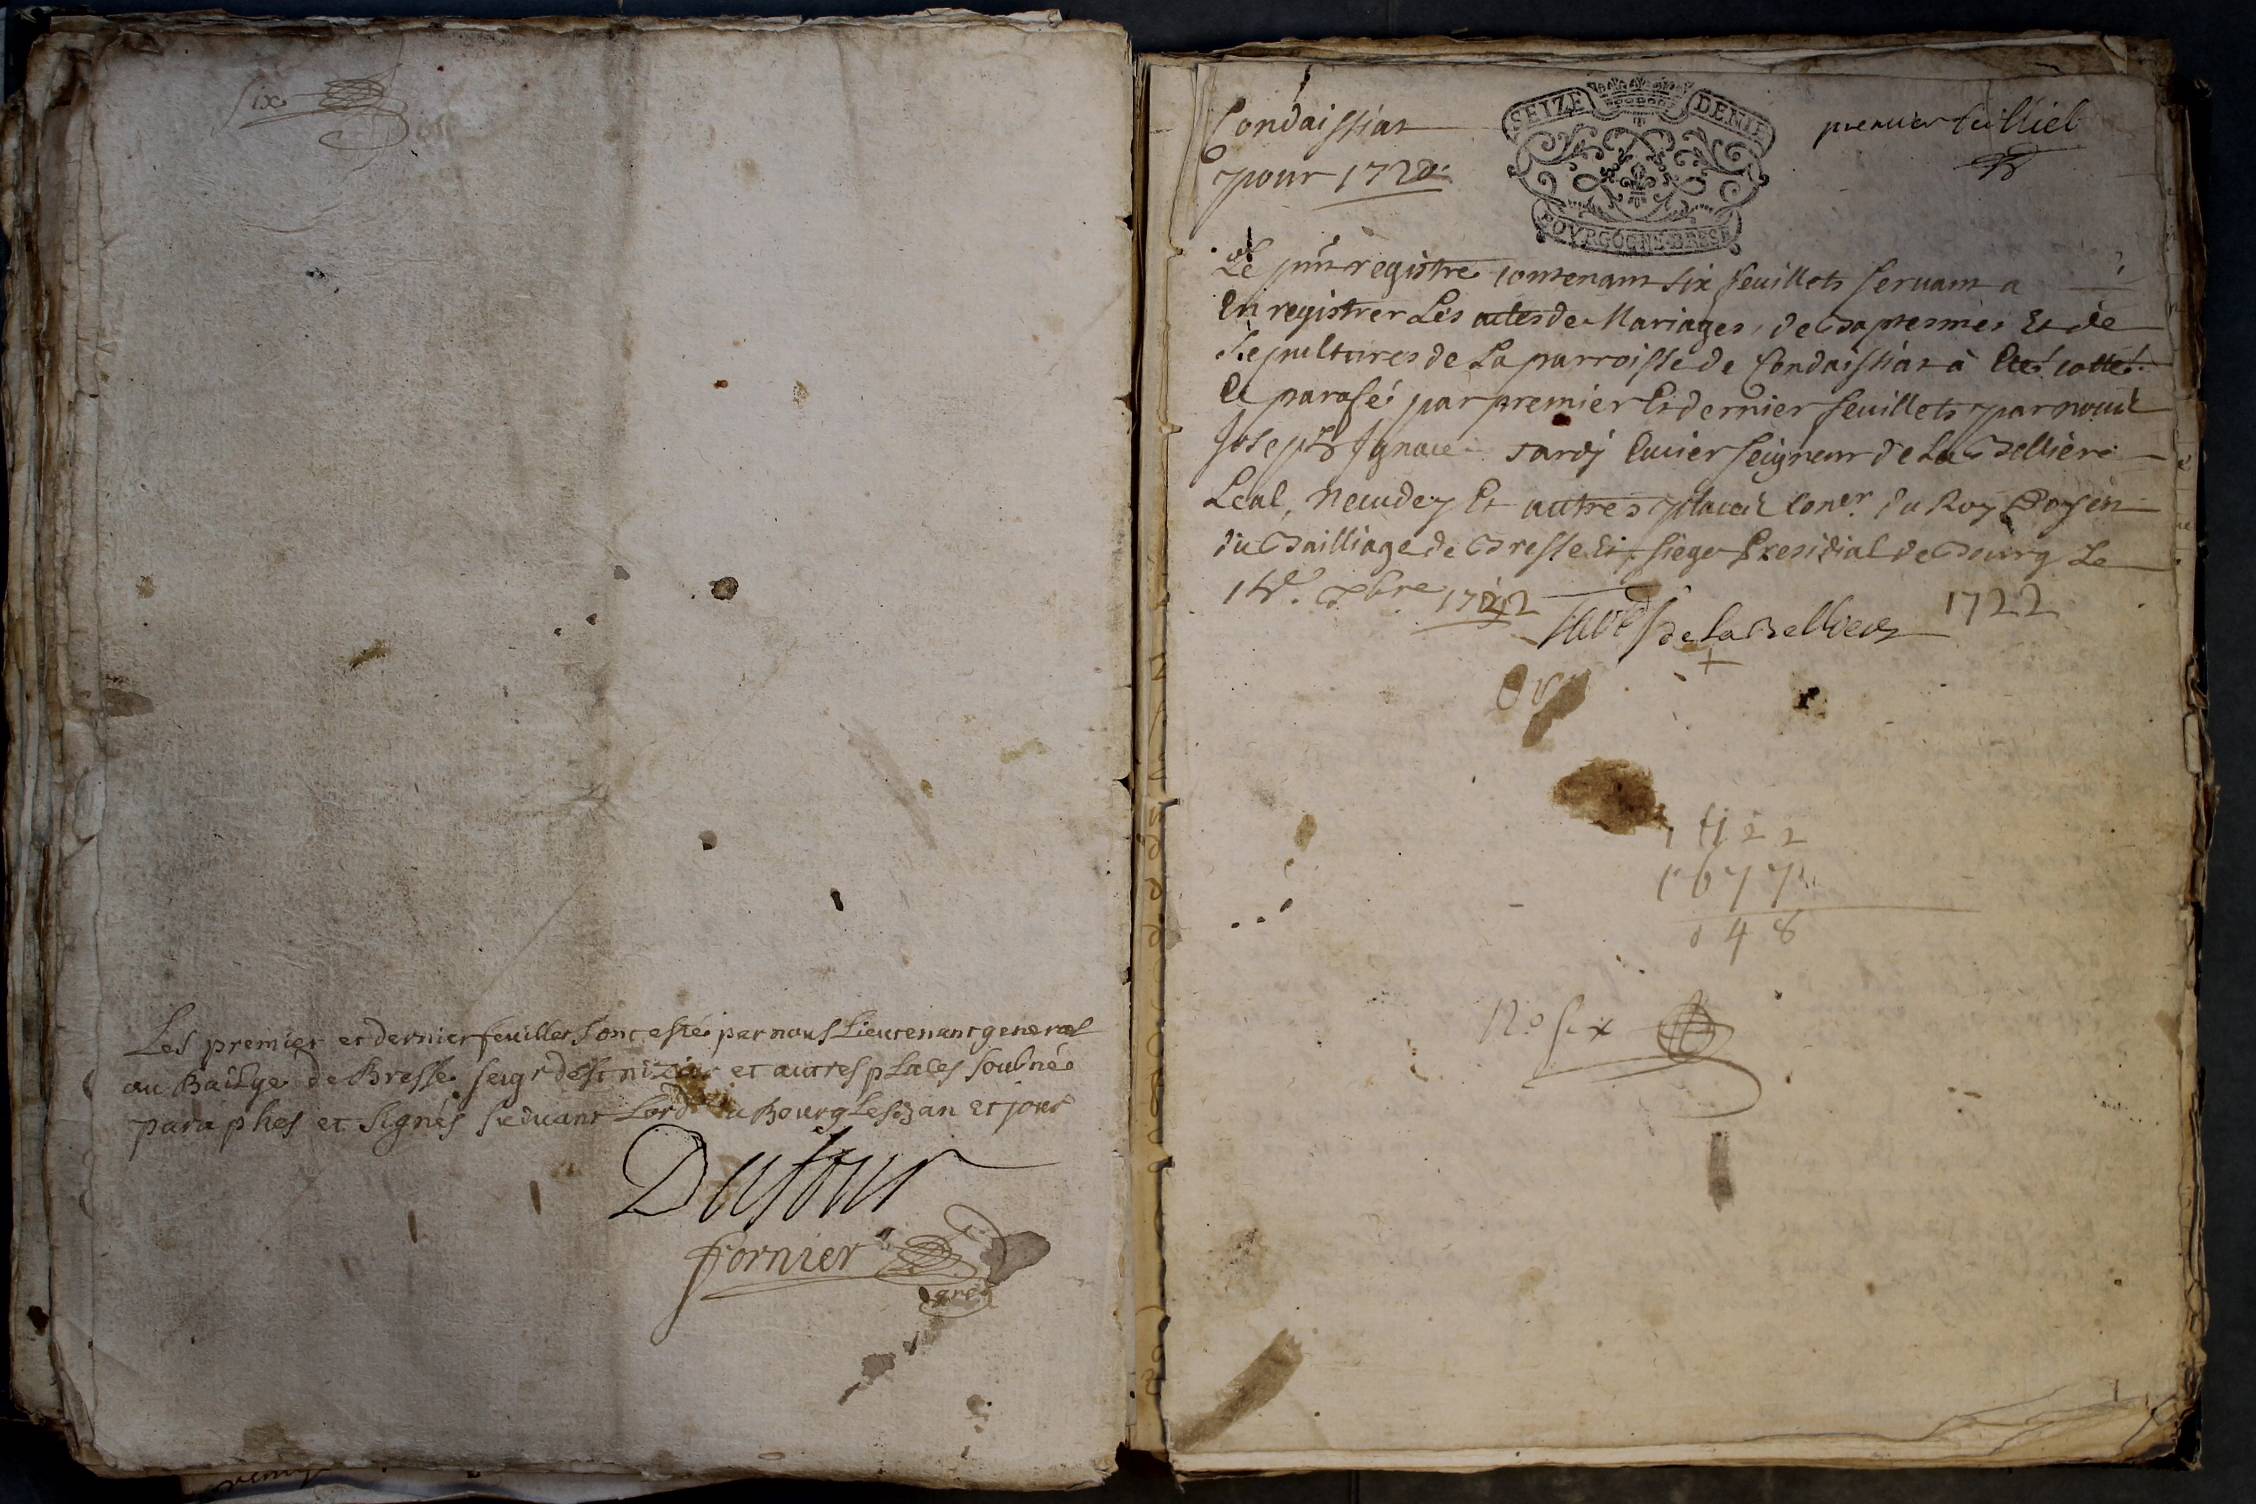 six
Les premier et dernier feuillet sont esté par nous Lieutenant general
au Bailye de Bresse seigr de St nizier et autres places soubné
paraphes et signés suivant Lord a Bourg Les an et jour
Dufour
Fornier
gref
Condaissiat
pour 172
SEIZE DENIE
BOVRGOGNE BRESSE
premier feulliet
Le pnt registre contenant six feuillets servant a
Enregistrer Les actes de Mariages, de Baptesmes Et de
Sepultures de La parroisse de Condaissiat à Eté cotté
Et parafé par premier Et dernier feuillets par nous
Joseph Ignace Ecuier seigneur de La Belliere
Leal, Et autres places Coner. du Roy Doyen
du Bailliage de Bresse Et siege Presidial de Bourg Le
Xbre 1722
de La Belliere
1722
1677
048
No six